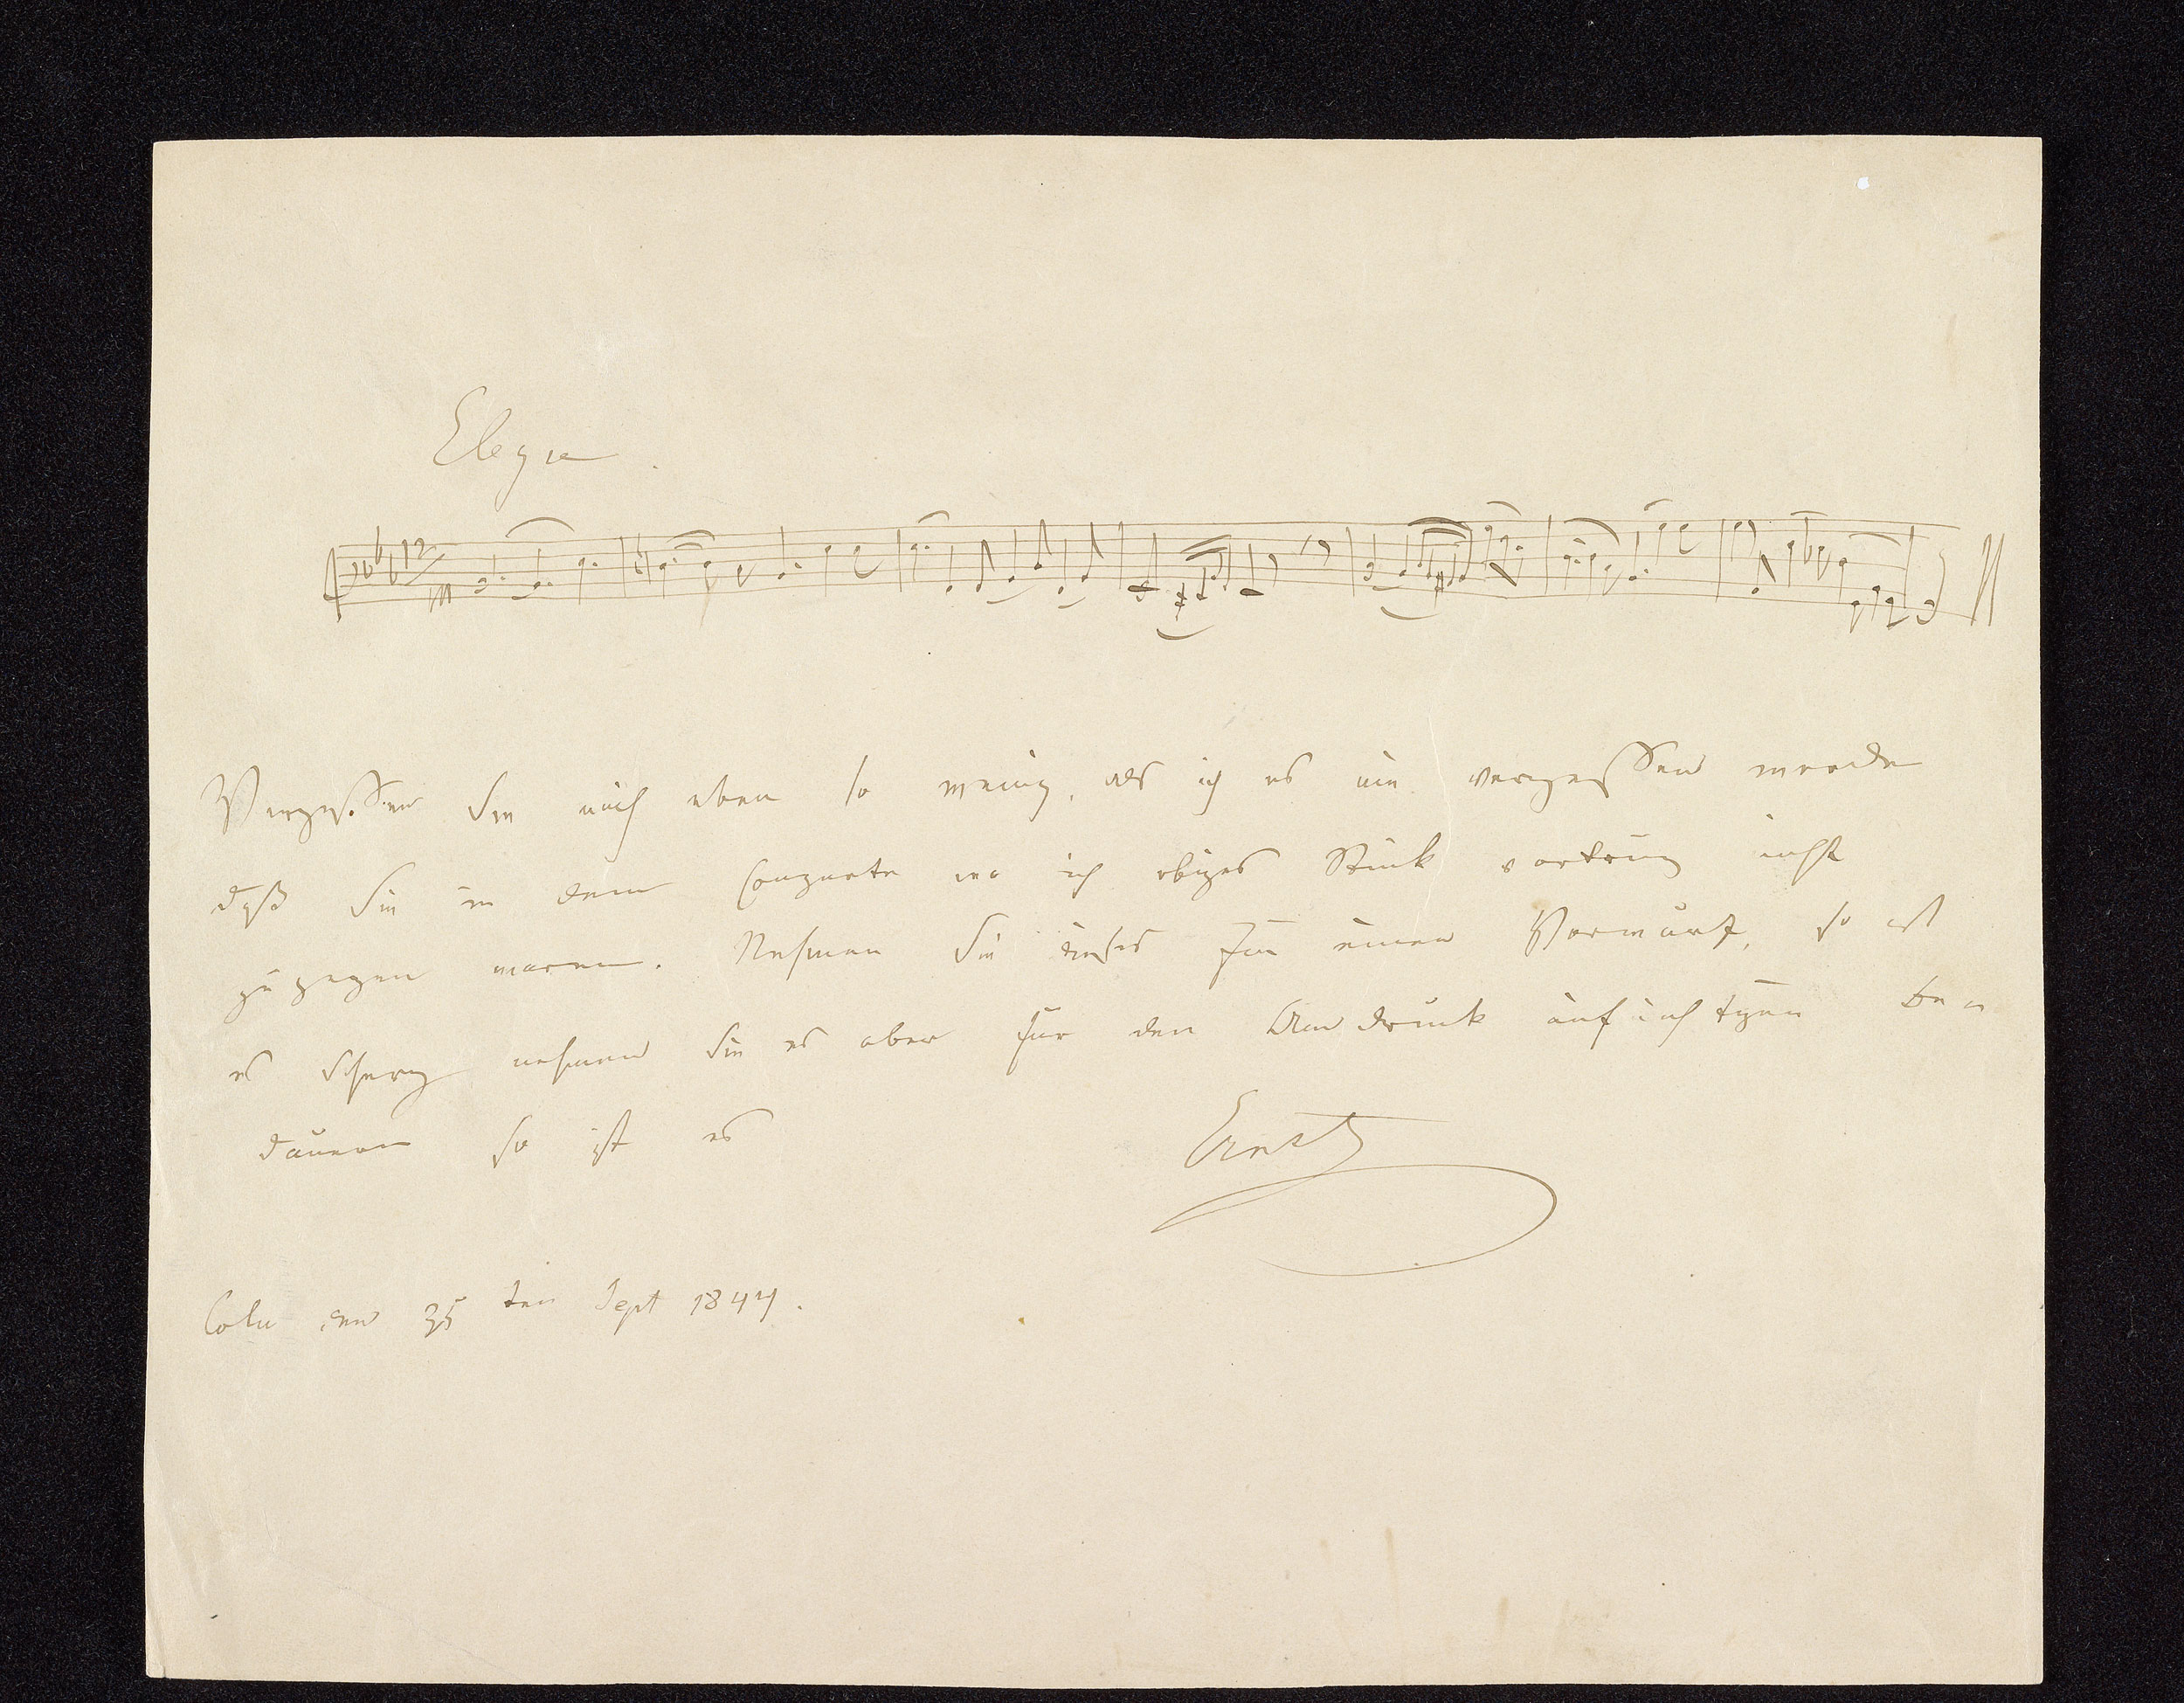 Elegie.
Vergessen Sie auch eben so wenig, als ich es nie vergessen werde
daß Sie in dem Conzerte wo ich obiges Stück vortrug nicht
zugegen waren. Nehmen Sie dieses für einen Vorwurf, so ist
es Scherz nehmen Sie es aber für den Ausdruck aufrichtigen Be
dauern so ist es
Ernst
Coln den ten Sept 1844.